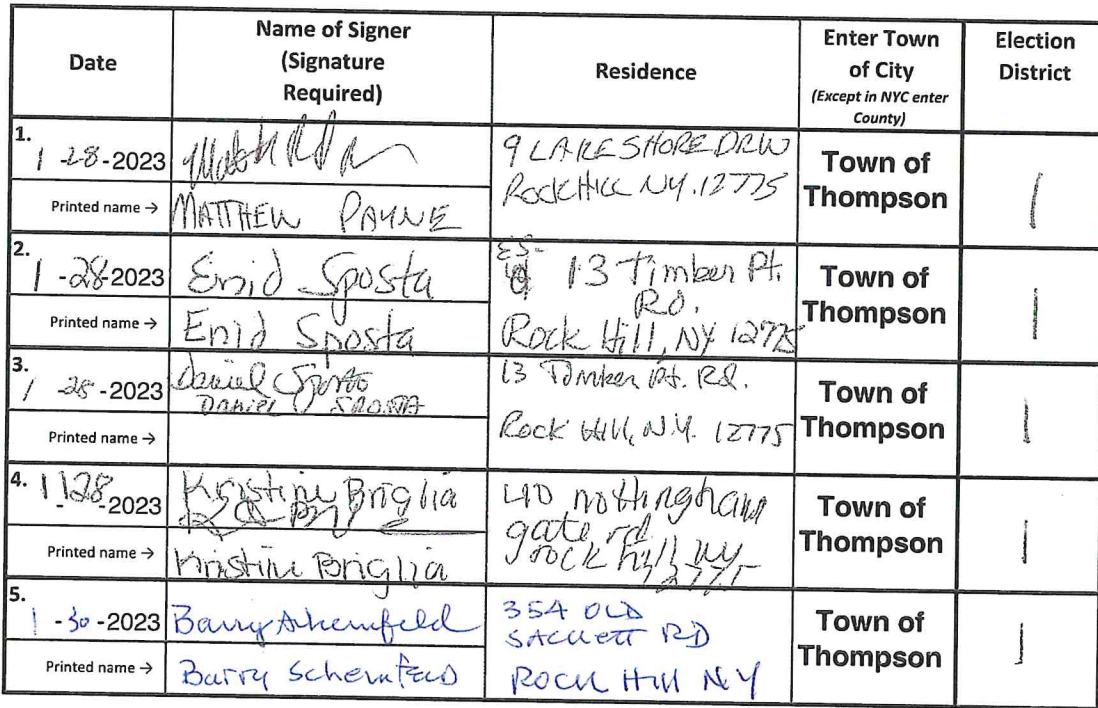 Date
Name of Signer
(Signature
Required)
Residence
Enter Town
of City
(Except in NYC enter
County)
Election
District
1.
1-28-2023
9 LAKE SHORE DR W
ROCK HILL NY. 12775
Town of
Thompson
1
Printed name →
MATTHEW PAYNE
2.
1-28-2023
Enid Sposta
ES-
13 Timber Pt.
Rd.
Rock Hill, NY 12775
Town of
Thompson
1
Printed name →
Enid Sposta
3.
1 28-2023
Daniel Sposta
DANIEL SPOSTA
13 Timber Pt. Rd.
Rock Hill, N.Y. 12775
Town of
Thompson
1
Printed name →
4.
1 28-2023
Kristine Briglia
40 nottingham
gate rd
rock hill ny
12775
Town of
Thompson
1
Printed name →
Kristine Briglia
5.
1-30-2023
Barry
354 OLD
SACKETT RD
ROCK Hill NY
Town of
Thompson
1
Printed name →
Barry